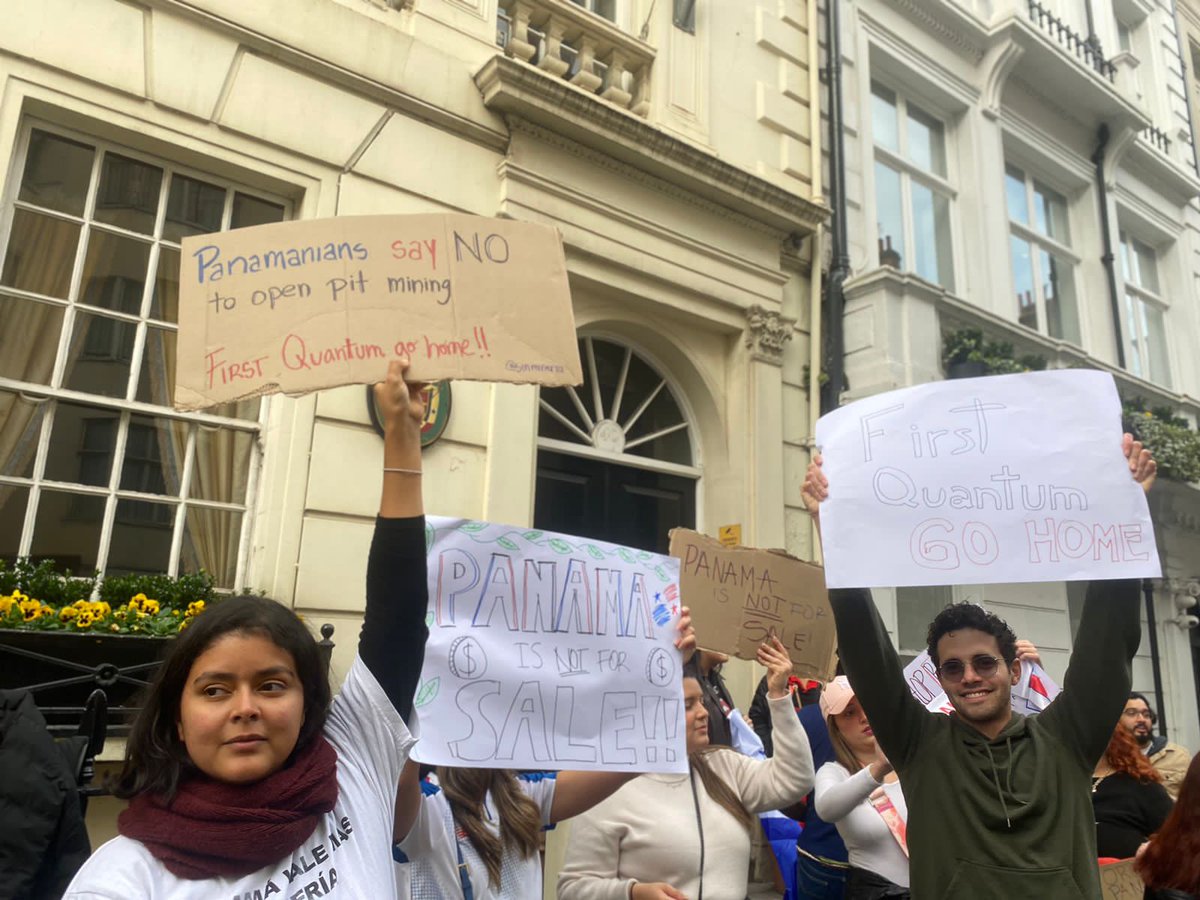 Panamanians say NO
to open pit mining
FIRST Quantum go home!!
PANAMA
IS NOT FOR
$ $
SALE!!
PANAMA
IS NOT FOR
SALE!
First
Quantum
GO HOME
MÁ VALE MÁS
ERÍA